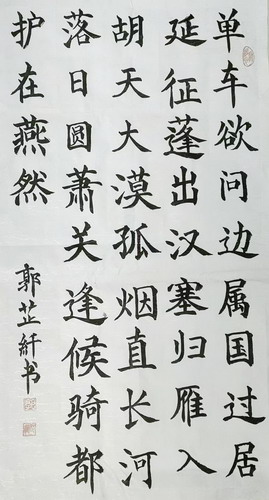 单车欲问边属国过居
延征蓬出汉塞归雁入
胡天大漠孤烟直长河
落日圆萧关逢候骑都
护在燕然
郭芷纤书